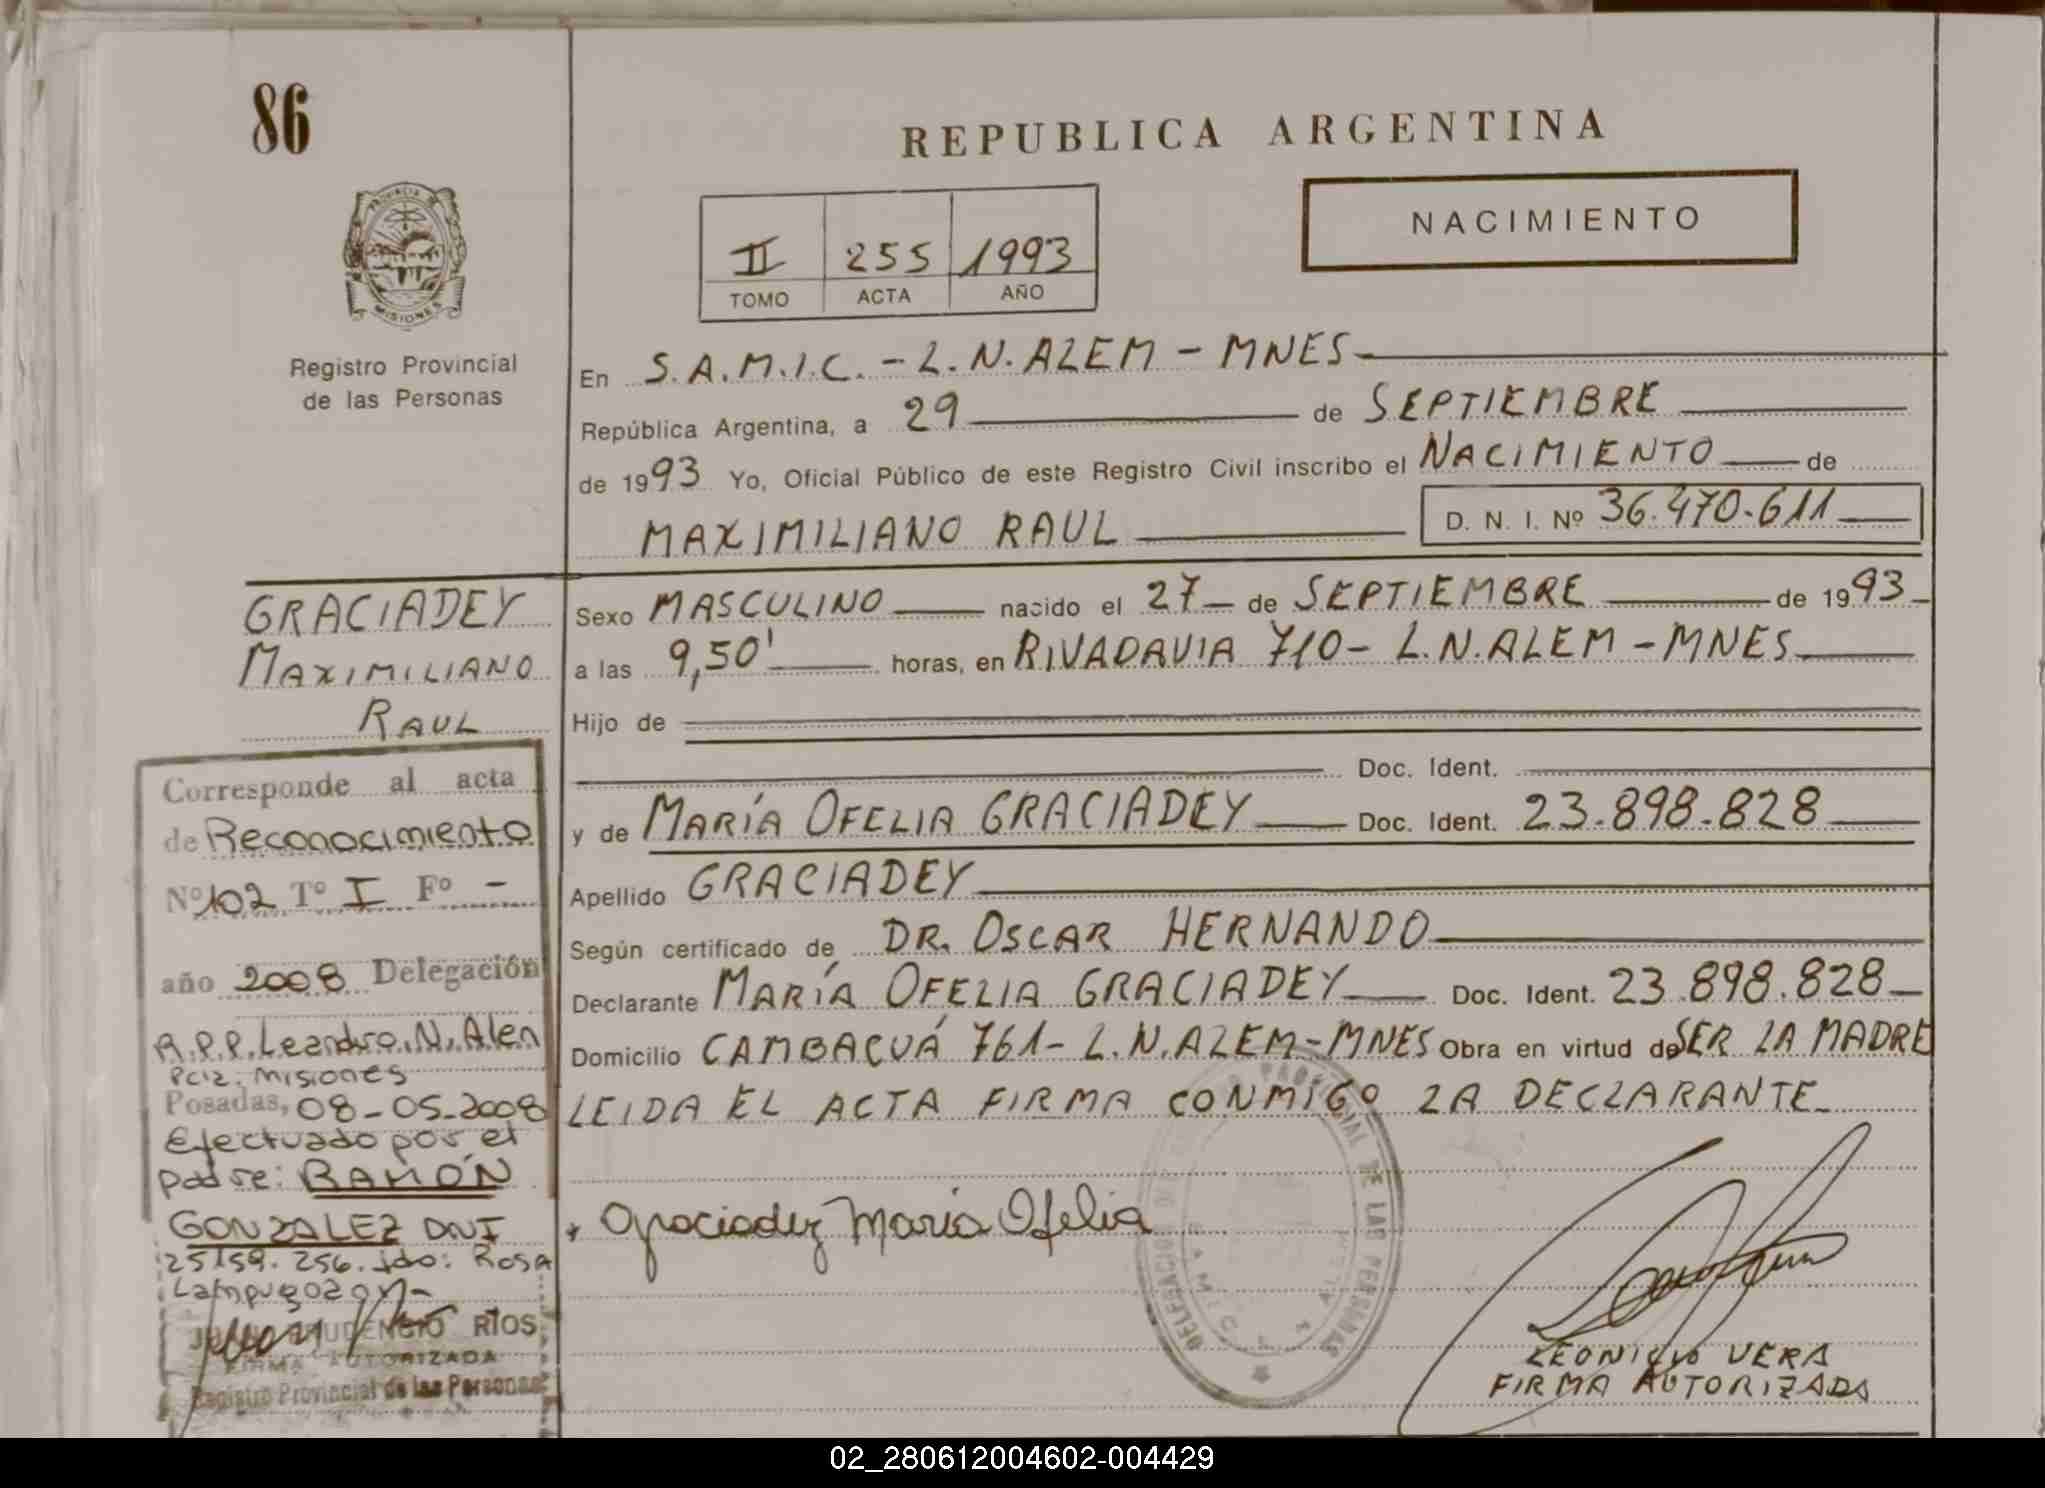 86
REPUBLICA ARGENTINA
PROVINCIA DE
MISIONES
Registro Provincial
de las Personas
II 255 1993
TOMO ACTA AÑO
NACIMIENTO
En S.A.M.I.C. - L.N. ALEM - MNES
República Argentina, a 29 de SEPTIEMBRE
de 1993 Yo, Oficial Público de este Registro Civil inscribo el NACIMIENTO de
MAXIMILIANO RAUL D. N. I. Nº 36.470.611
GRACIADEY
MAXIMILIANO
RAUL
Sexo MASCULINO nacido el 27 de SEPTIEMBRE de 1993
a las 9,50' horas, en RIVADAVIA 710 - L.N. ALEM - MNES
Hijo de
Doc. Ident.
y de MARÍA OFELIA GRACIADEY Doc. Ident. 23.898.828
Apellido GRACIADEY
Según certificado de DR. OSCAR HERNANDO
Declarante MARÍA OFELIA GRACIADEY Doc. Ident. 23.898.828
Domicilio CAMBACUÁ 761 - L.N. ALEM - MNES Obra en virtud de SER LA MADRE
LEIDA EL ACTA FIRMA CONMIGO LA DECLARANTE
Graciadey Maria Ofelia
LEONICIO VERA
FIRMA AUTORIZADA
Corresponde al acta
de Reconocimiento
Nº 102 Tº I Fº -
año 2008 Delegación
R.P.P. Leandro. N. Alen
Pcia: Misiones
Posadas, 08-05-2008
Efectuado por el
padre: RAMÓN
GONZALEZ DNI
25.159.256. fdo: Rosa
PRUDENCIO RIOS
FIRMA AUTORIZADA
Registro Provincial de las Personas
02_280612004602-004429